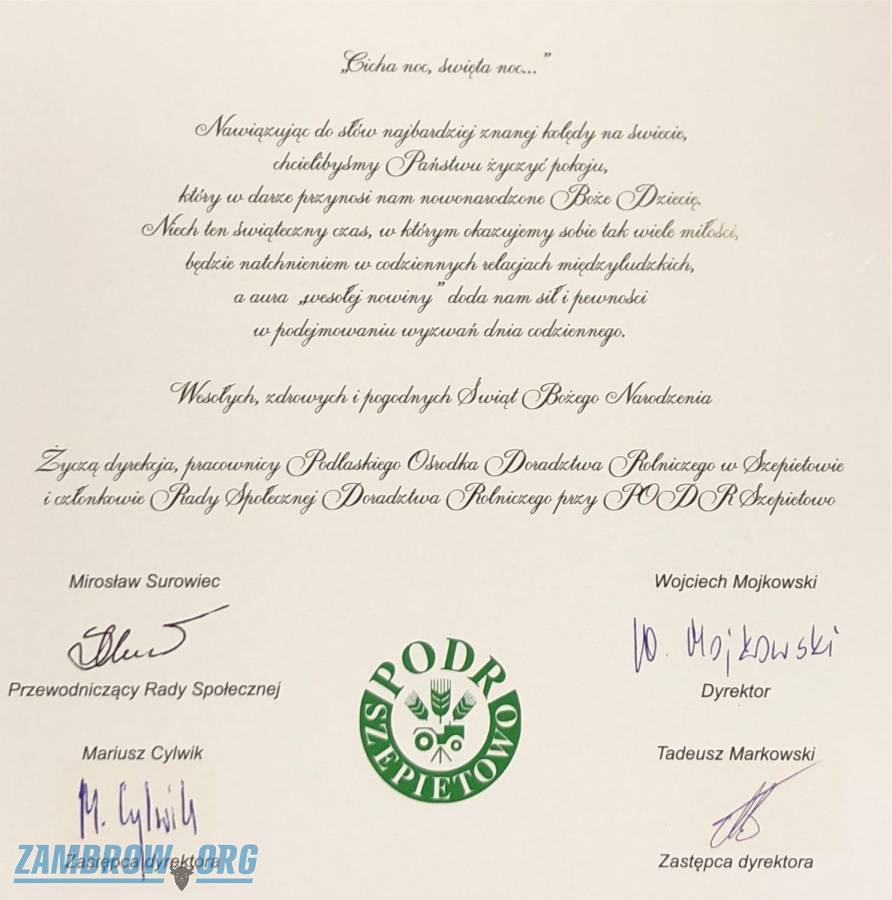 „Cicha noc, święta noc...”
Nawiązując do słów najbardziej znanej kolędy na świecie,
chcielibyśmy Państwu życzyć pokoju,
który w darze przynosi nam nowonarodzone Boże Dziecię.
Niech ten świąteczny czas, w którym okazujemy sobie tak wiele miłości,
będzie natchnieniem w codziennych relacjach międzyludzkich,
a aura „wesołej nowiny” doda nam sił i pewności
w podejmowaniu wyzwań dnia codziennego.
Wesołych, zdrowych i pogodnych Świąt Bożego Narodzenia
Życzą dyrekcja, pracownicy Podlaskiego Ośrodka Doradztwa Rolniczego w Szepietowie
i członkowie Rady Społecznej Doradztwa Rolniczego przy PODR Szepietowo
Mirosław Surowiec
Przewodniczący Rady Społecznej
Wojciech Mojkowski
W. Mojkowski
Dyrektor
PODR
SZEPIETOWO
Mariusz Cylwik
M. Cylwik
Zastępca dyrektora
Tadeusz Markowski
Zastępca dyrektora
ZAMBROW.ORG